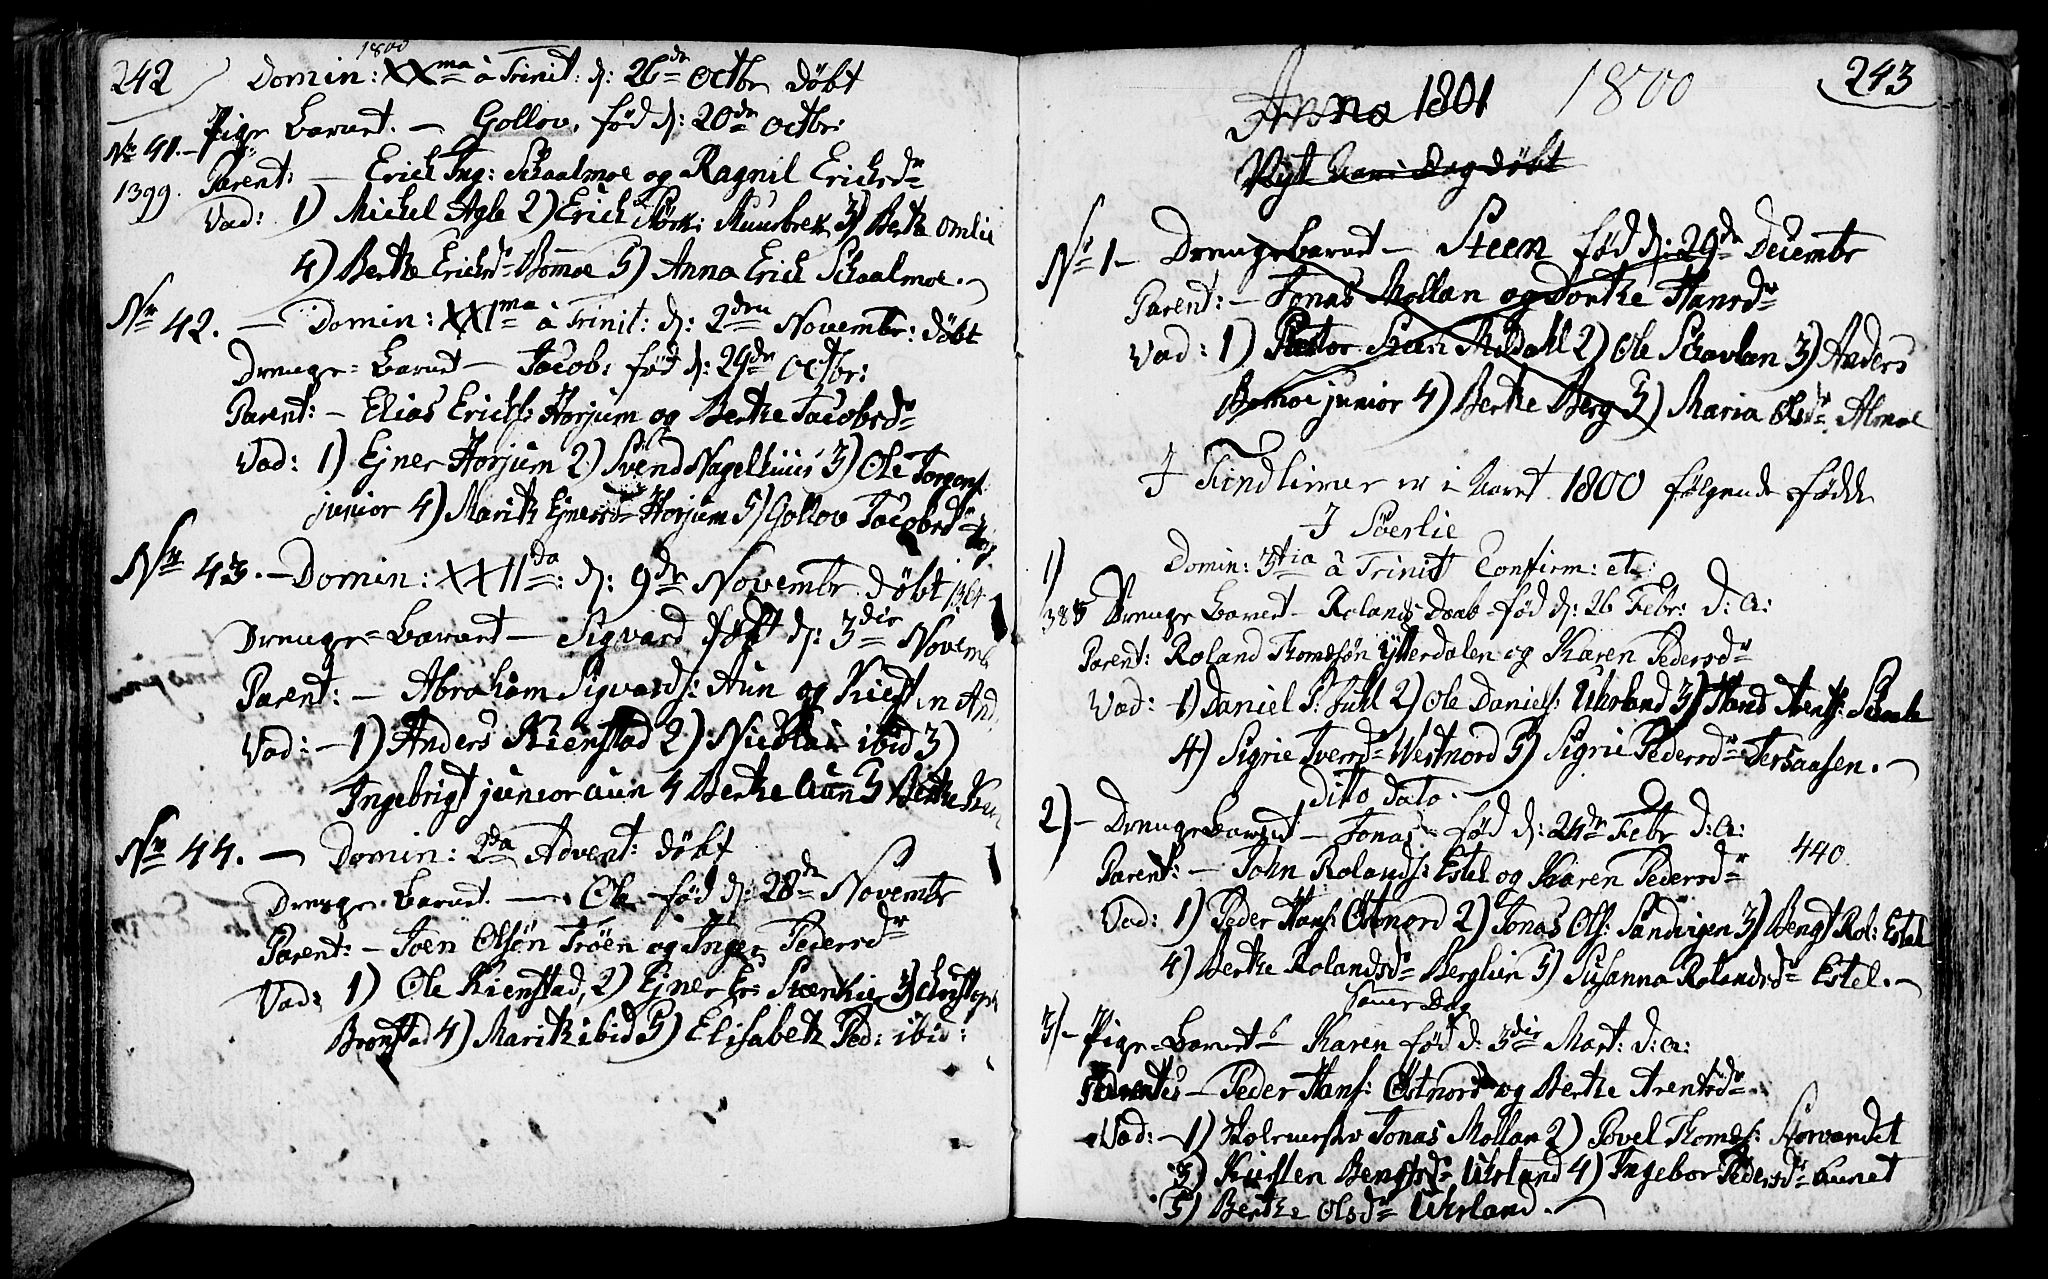 242
1800
Domin: XXma à Trinit: d: 26de Octbr døbt
No 41. Pige Barnet. — Gollov, fød d: 20de Octbr:
1399. Parent: — Erich Ing: Skaalmoe og Ragnil Erichsdr
Vad: 1) Michel Agle 2) Erich Muusbrek 3) Berth Omlie
4) Berthe Erichsdr Bomoe 5) Anna Erich Skaalmoe.
No 42. — Domin: XXIma à Trinit: d: 2den Novembr: døbt
Drenge-Barnet — Jacob: fød d: 29de Octbr:
Parent: — Elias Erichs: Horjum og Berthe Jacobsdr
Vad: 1) Ejner Horjum 2) Svend Nagelhuus 3) Ole Jorgens:
junior 4) Marith Ejnersdr Horjum 5) Gollov Jacobsdr
No 43. — Domin: XXIIda: d: 9de Novembr døbt
Drenge-Barnet — Sigvard født d: 3die Novemb
Parent: — Abraham Sigvards: Aun og Kirsten And
Vad: — 1) Anders Kienstad 2) Nicolai ibid 3)
Ingebrigt junior Aun 4 Berthe Aun 5 Berthe
No 44. — Domin: 2da Advent: døbt
Drenge-Barnet. — Ole fød d: 28de Novembr
Parent: — Joen Olsøn Trøen og Inger Pedersdr
Vad: 1) Ole Kienstad, 2) Ejner Er: Stærkier 3) Christoph
Bronstad 4) Marith ibid 5) Elisabeth Ped: ibid:
243
Anno 1801 1800
Nyt Aars Dag døbt
No 1 — Drengebarnet — Steen fød d: 29de Decembr
Parent: — Jonas Mollan og Dorthe Hansdr
Vad: 1) Pastor Steen Mildahl 2) Ole Skavlan 3) Anders
Bomoe junior 4) Berthe Berg 5) Maria Olsdr Almoe
I Findlierne er i Aaret 1800 følgende fødde
I Sørlie
1) Domin: 3tia à Trinit Confirm: etc:
388 Drenge Barnet — Roland Daab fød d: 26 Febr: d: a:
Parent: Roland Thomesøn Ytterdalen og Karen Pedersdr
Vad: 1) Daniel P: Juhl 2) Ole Daniels: Uhrland 3) Hans Arents:
4) Sigrie Iversdr Westnord 5) Sigrie Pedersdr Torsaasen.
Dito Dato.
2) — Drenge Barnet — Jonas fød d: 24de Febr d: a:
440
Parent: — John Rolands: Estel og Karen Pedersdr
Vad: 1) Peder Hans: Østnord 2) Jonas Ols: Sandvigen 3) Bengt Rol: Estel
4) Berthe Rolandsdr Berglien 5) Susanna Rolandsdr Estel.
Samme Dag
3) — Pige-Barnet — Karen fød d: 3die Mart: d: a:
Parentes — Peder Hans: Østnord og Berthe Arentsdr
Vad: — 1) Jonas Mollan 2) Povel Thomes: Storvandet
3) Kirsten Bengtsdr Uhrland 4) Ingebor Pedersdr Aunet
5) Berthe Olsdr Uhrland.